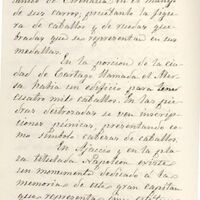 tantes de Cirenaica en el manejo
de sus carros, presentando la figu-
ra de caballos y de ruedas que-
bradas que se representan en sus
medallas.
En la porcion de la ciu-
dad de Cartago llamada el Bersa
habia un edificio para tener
cuatro mil caballos. En las pie-
dras desterradas se ven inscrip-
ciones púnicas, presentando co-
mo símbolo cabezas de caballos.
En Ajaccio y en la pla-
za titulada Napoleon existe
un monumento dedicado á la
memoria de este gran capitan
que representa una estatua